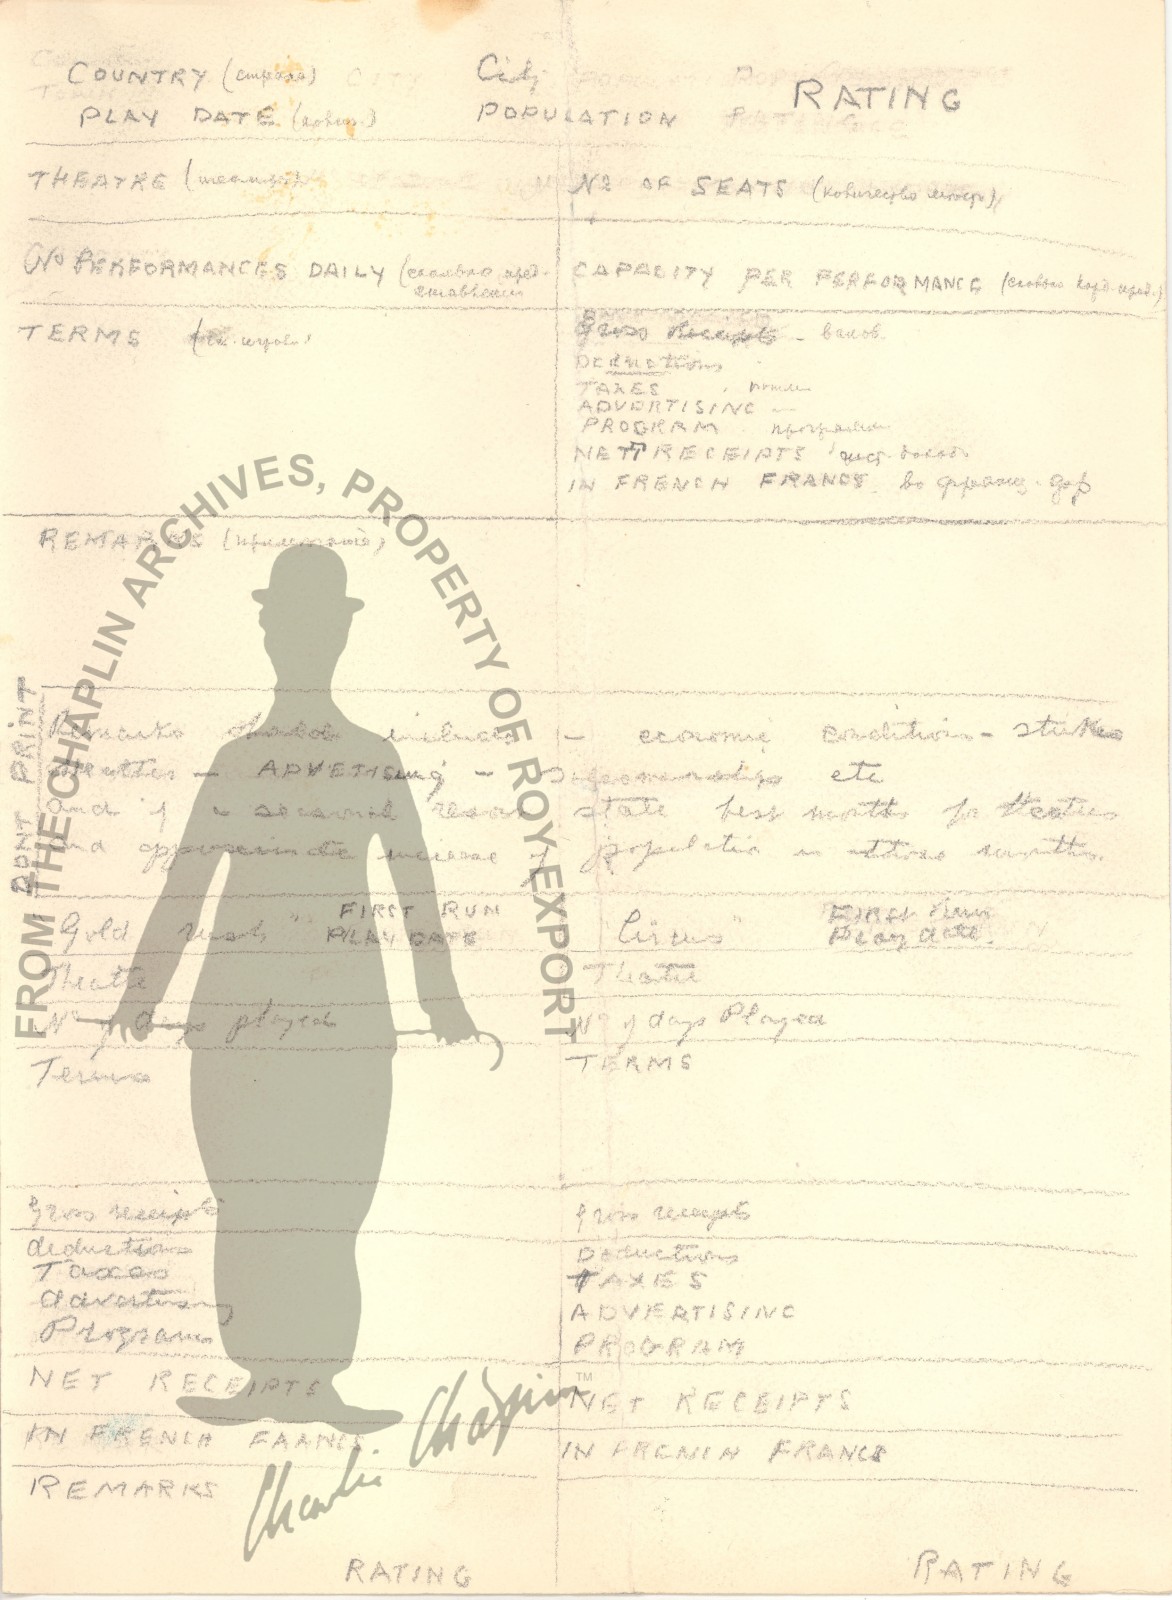 COUNTRY (страна) City RATING
PLAY DATE POPULATION
THEATRE № OF SEATS (количество мест)
No PERFORMANCES DAILY (сколько пред- CAPACITY PER PERFORMANCE
ставлений
TERMS Gross Receipts - валов.
Deductions
TAXES
ADVERTISING
PROGRAM программы
NETT RECEIPTS
IN FRENCH FRANCS во француз.
REMARKS (примечания)
DONT PRINT
Remarks should include - economic conditions - strikes
weather - ADVETISING - etc
and if a seasonal resort state best months for theatres
and approximate increase of population in those months.
Gold rush" FIRST RUN PLAY DATE Circus" FIRST Run Play date.
Theatre Theatre
No of days played No of days Played
Terms TERMS
Gross receipts Gross receipts
deductions Deductions
Taxes TAXES
advertising ADVERTISING
Program PROGRAM
NET RECEIPTS NET RECEIPTS
IN FRENCH FRANCS. IN FRENCH FRANCS
REMARKS
RATING RATING
FROM THE CHAPLIN ARCHIVES, PROPERTY OF ROY EXPORT
Charlie Chaplin™